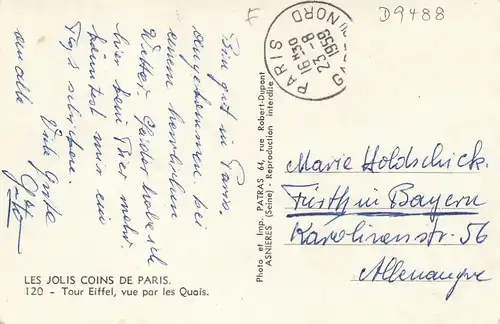 F
D9488
PARIS GARE DU NORD
16H30
23-8
1959
Bin gut in Paris
angekommen bei
einem herrlichen
Wetter. Leider habe ich
hier kein Bier mehr.
könntst mir ein
Fass schicken.
Viele Grüße
an alle
Photo et Imp. PATRAS 64, rue Robert-Dupont
ASNIERES (Seine) - Reproduction interdite
Marie Holdschick.
Fürth in Bayern
Karolinenstr. 56
Allemagne
LES JOLIS COINS DE PARIS.
120 - Tour Eiffel, vue par les Quais.